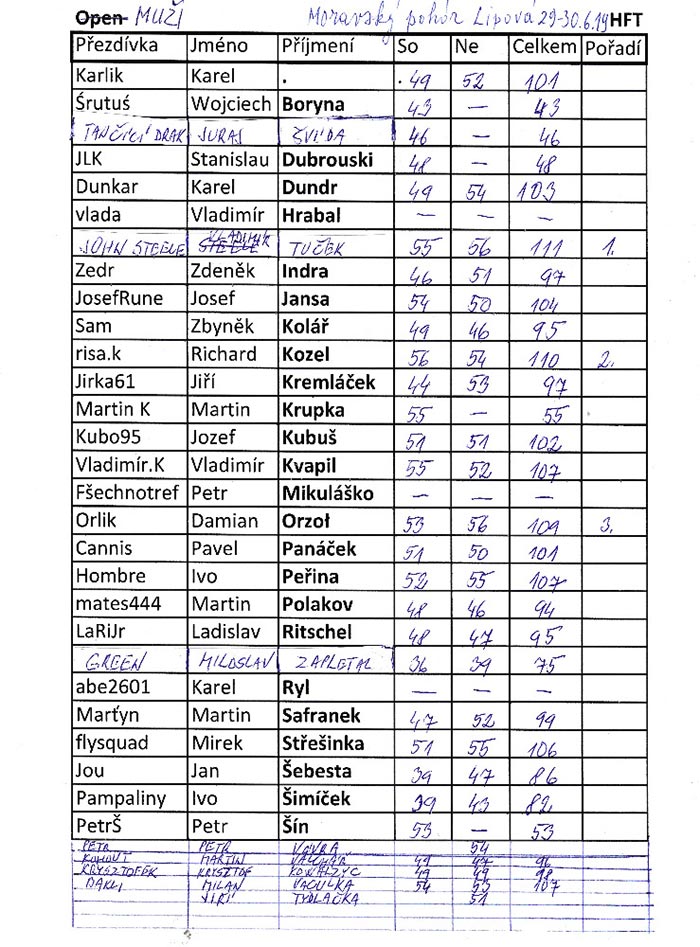 Open MUŽI Moravský pohár Lipová 29-30.6.19 HFT
Přezdívka Jméno Příjmení So Ne Celkem Pořadí
Karlik Karel . . 49 52 101
Šrutuś Wojciech Boryna 43 — 43
TANČÍCÍ DRAK JURAJ ZVĎDA 46 — 46
JLK Stanislau Dubrouski 48 — 48
Dunkar Karel Dundr 49 54 103
vlada Vladimír Hrabal — — —
JOHN STEELE STEELE VLADIMIR TUČEK 55 56 111 1.
Zedr Zdeněk Indra 46 51 97
JosefRune Josef Jansa 54 50 104
Sam Zbyněk Kolář 49 46 95
risa.k Richard Kozel 56 54 110 2.
Jirka61 Jiří Kremláček 44 53 97
Martin K Martin Krupka 55 — 55
Kubo95 Jozef Kubuš 51 51 102
Vladimír.K Vladimír Kvapil 55 52 107
Fšechnotref Petr Mikuláško — — —
Orlik Damian Orzoł 53 56 109 3.
Cannis Pavel Panáček 51 50 101
Hombre Ivo Peřina 52 55 107
mates444 Martin Polakov 48 46 94
LaRiJr Ladislav Ritschel 48 47 95
GREEN MILOSLAV ZAPLETAL 36 39 75
abe2601 Karel Ryl — — —
Marťyn Martin Safranek 47 52 99
flysquad Mirek Střešinka 51 55 106
Jou Jan Šebesta 39 47 86
Pampaliny Ivo Šimíček 39 43 82
PetrŠ Petr Šín 53 — 53
PETR PETR VÁVRA 54
KOHOUT MARTIN VALCHÁŘ 49 47 96
KRYSZTOFEK KRYSZTOF KOWALZYC 49 49 98
DAKLI MILAN VACULKA 54 53 107
JIŘÍ TYDLAČKA 51